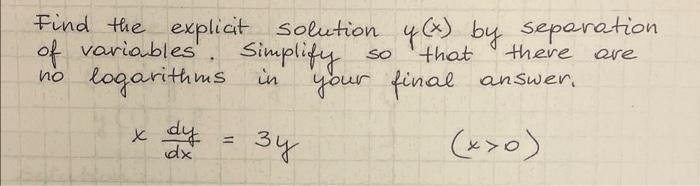 Find the explicit solution y(x) by separation
of variables. Simplify so that there are
no logarithms in your final answer.
x dy/dx = 3y (x>0)